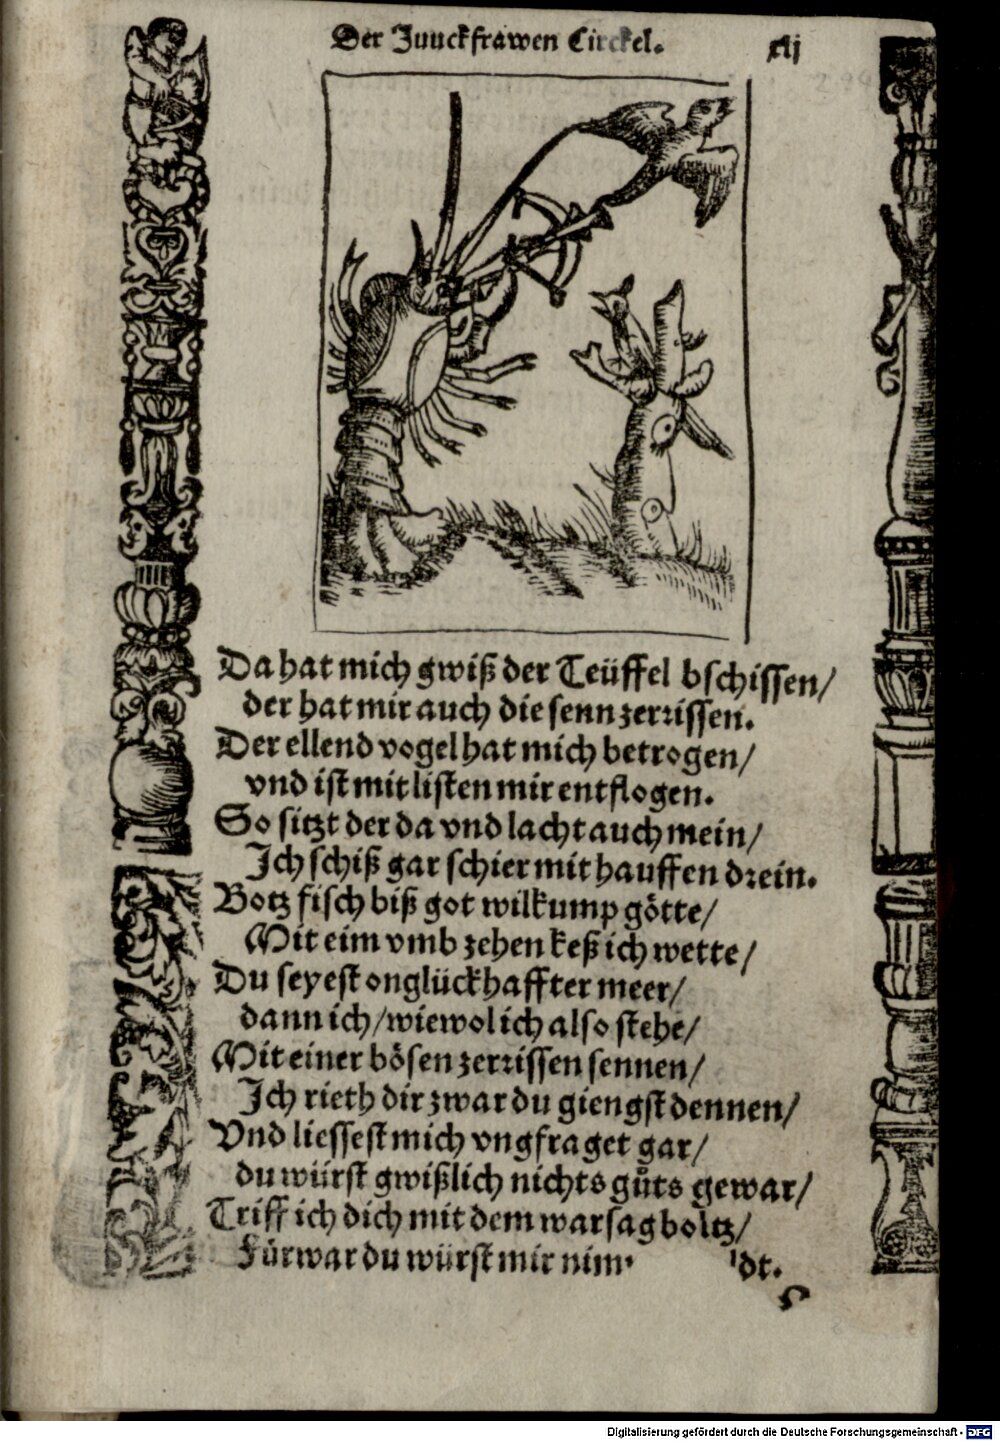 Der Juuckfrawen Circkel.
xlj
Da hat mich gwiß der Teüffel bschissen/
der hat mir auch die senn zerrissen.
Der ellend vogel hat mich betrogen/
vnd ist mit listen mir entflogen.
So sitzt der da vnd lacht auch mein/
Ich schiß gar schier mit hauffen drein.
Botz fisch biß got wilkump götte/
Mit eim vmb zehen keß ich wette/
Du seyest onglückhaffter meer/
dann ich/wiewol ich also stehe/
Mit einer bösen zerrissen sennen/
Ich rieth dir zwar du giengst dennen/
Vnd liessest mich vngfraget gar/
du würst gwißlich nichts gůts gewar/
Triff ich dich mit dem warsag boltz/
Fürwar du würst mir
Digitalisierung gefördert durch die Deutsche Forschungsgemeinschaft - DFG